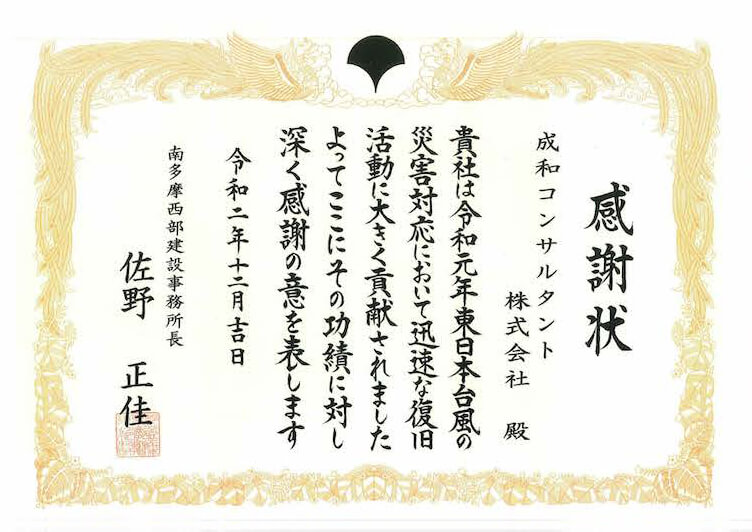 感謝状
成和コンサルタント
株式会社 殿
貴社は令和元年東日本台風の
災害対応において迅速な復旧
活動に大きく貢献されました
よってここにその功績に対し
深く感謝の意を表します
令和二年十二月吉日
南多摩西部建設事務所長
佐野 正佳